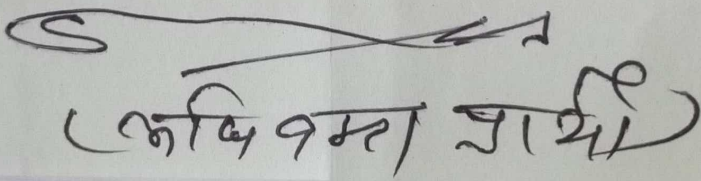 (अधिवक्ता प्रार्थी)